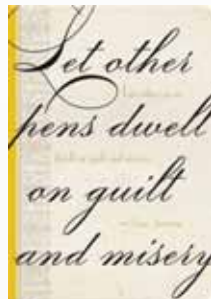 Let other
pens dwell
on guilt
and misery